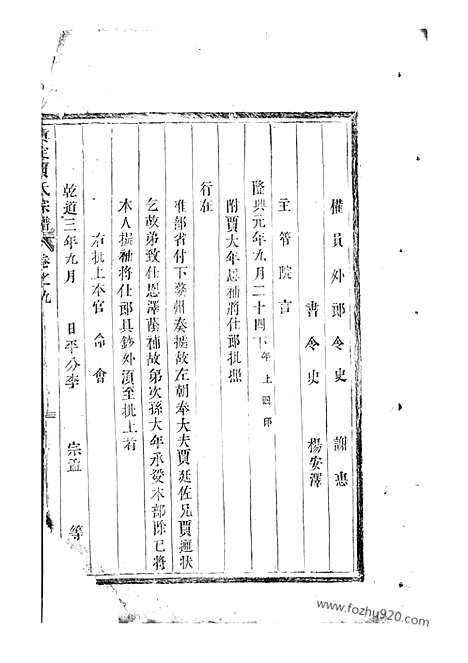 權員外郎令史 謝惠
書令史 楊安澤
主管院言
隆興元年九月二十四日 年上四印
附賈大年恩補將仕郎批照
行在
准都省付下婺州奏據故左朝奉大夫賈廷佐兄賈適狀
乞故弟致仕恩澤蔭補故弟次孫大年承受本部除已將
本人擬補將仕郎具鈔外須至批上者
右批上本官 命會
乾道三年九月 日平公李 宗孟 等
真定賈氏宗譜 卷之九
www.fozhu920.com